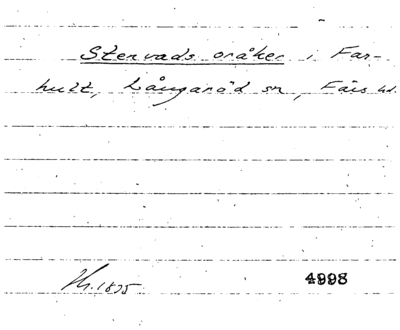 Stenvads oråker i Far-
hult, Långaröd sn, Färs hd.
1895 4998